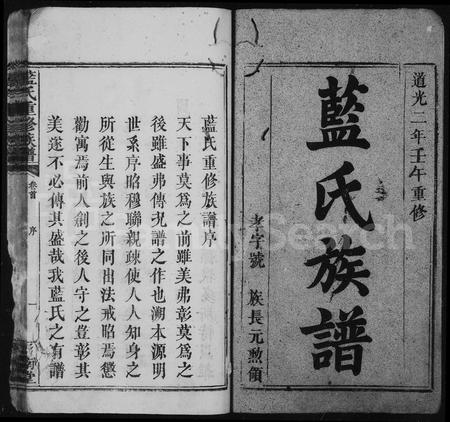 道光二年壬午重修
藍氏族譜
孝字號 族長元勲領
藍氏重修族譜序
天下事莫為之前雖美弗彰莫為之
後雖盛弗傳況譜之作也溯本源明
世系序昭穆聯親疎使人人知身之
所從生與族之所同出法戒昭焉懲
勸寓焉前人創之後人守之豈彰其
美遂不必傳其盛哉我藍氏之有譜
藍氏重修族譜
卷首
序
一
Search